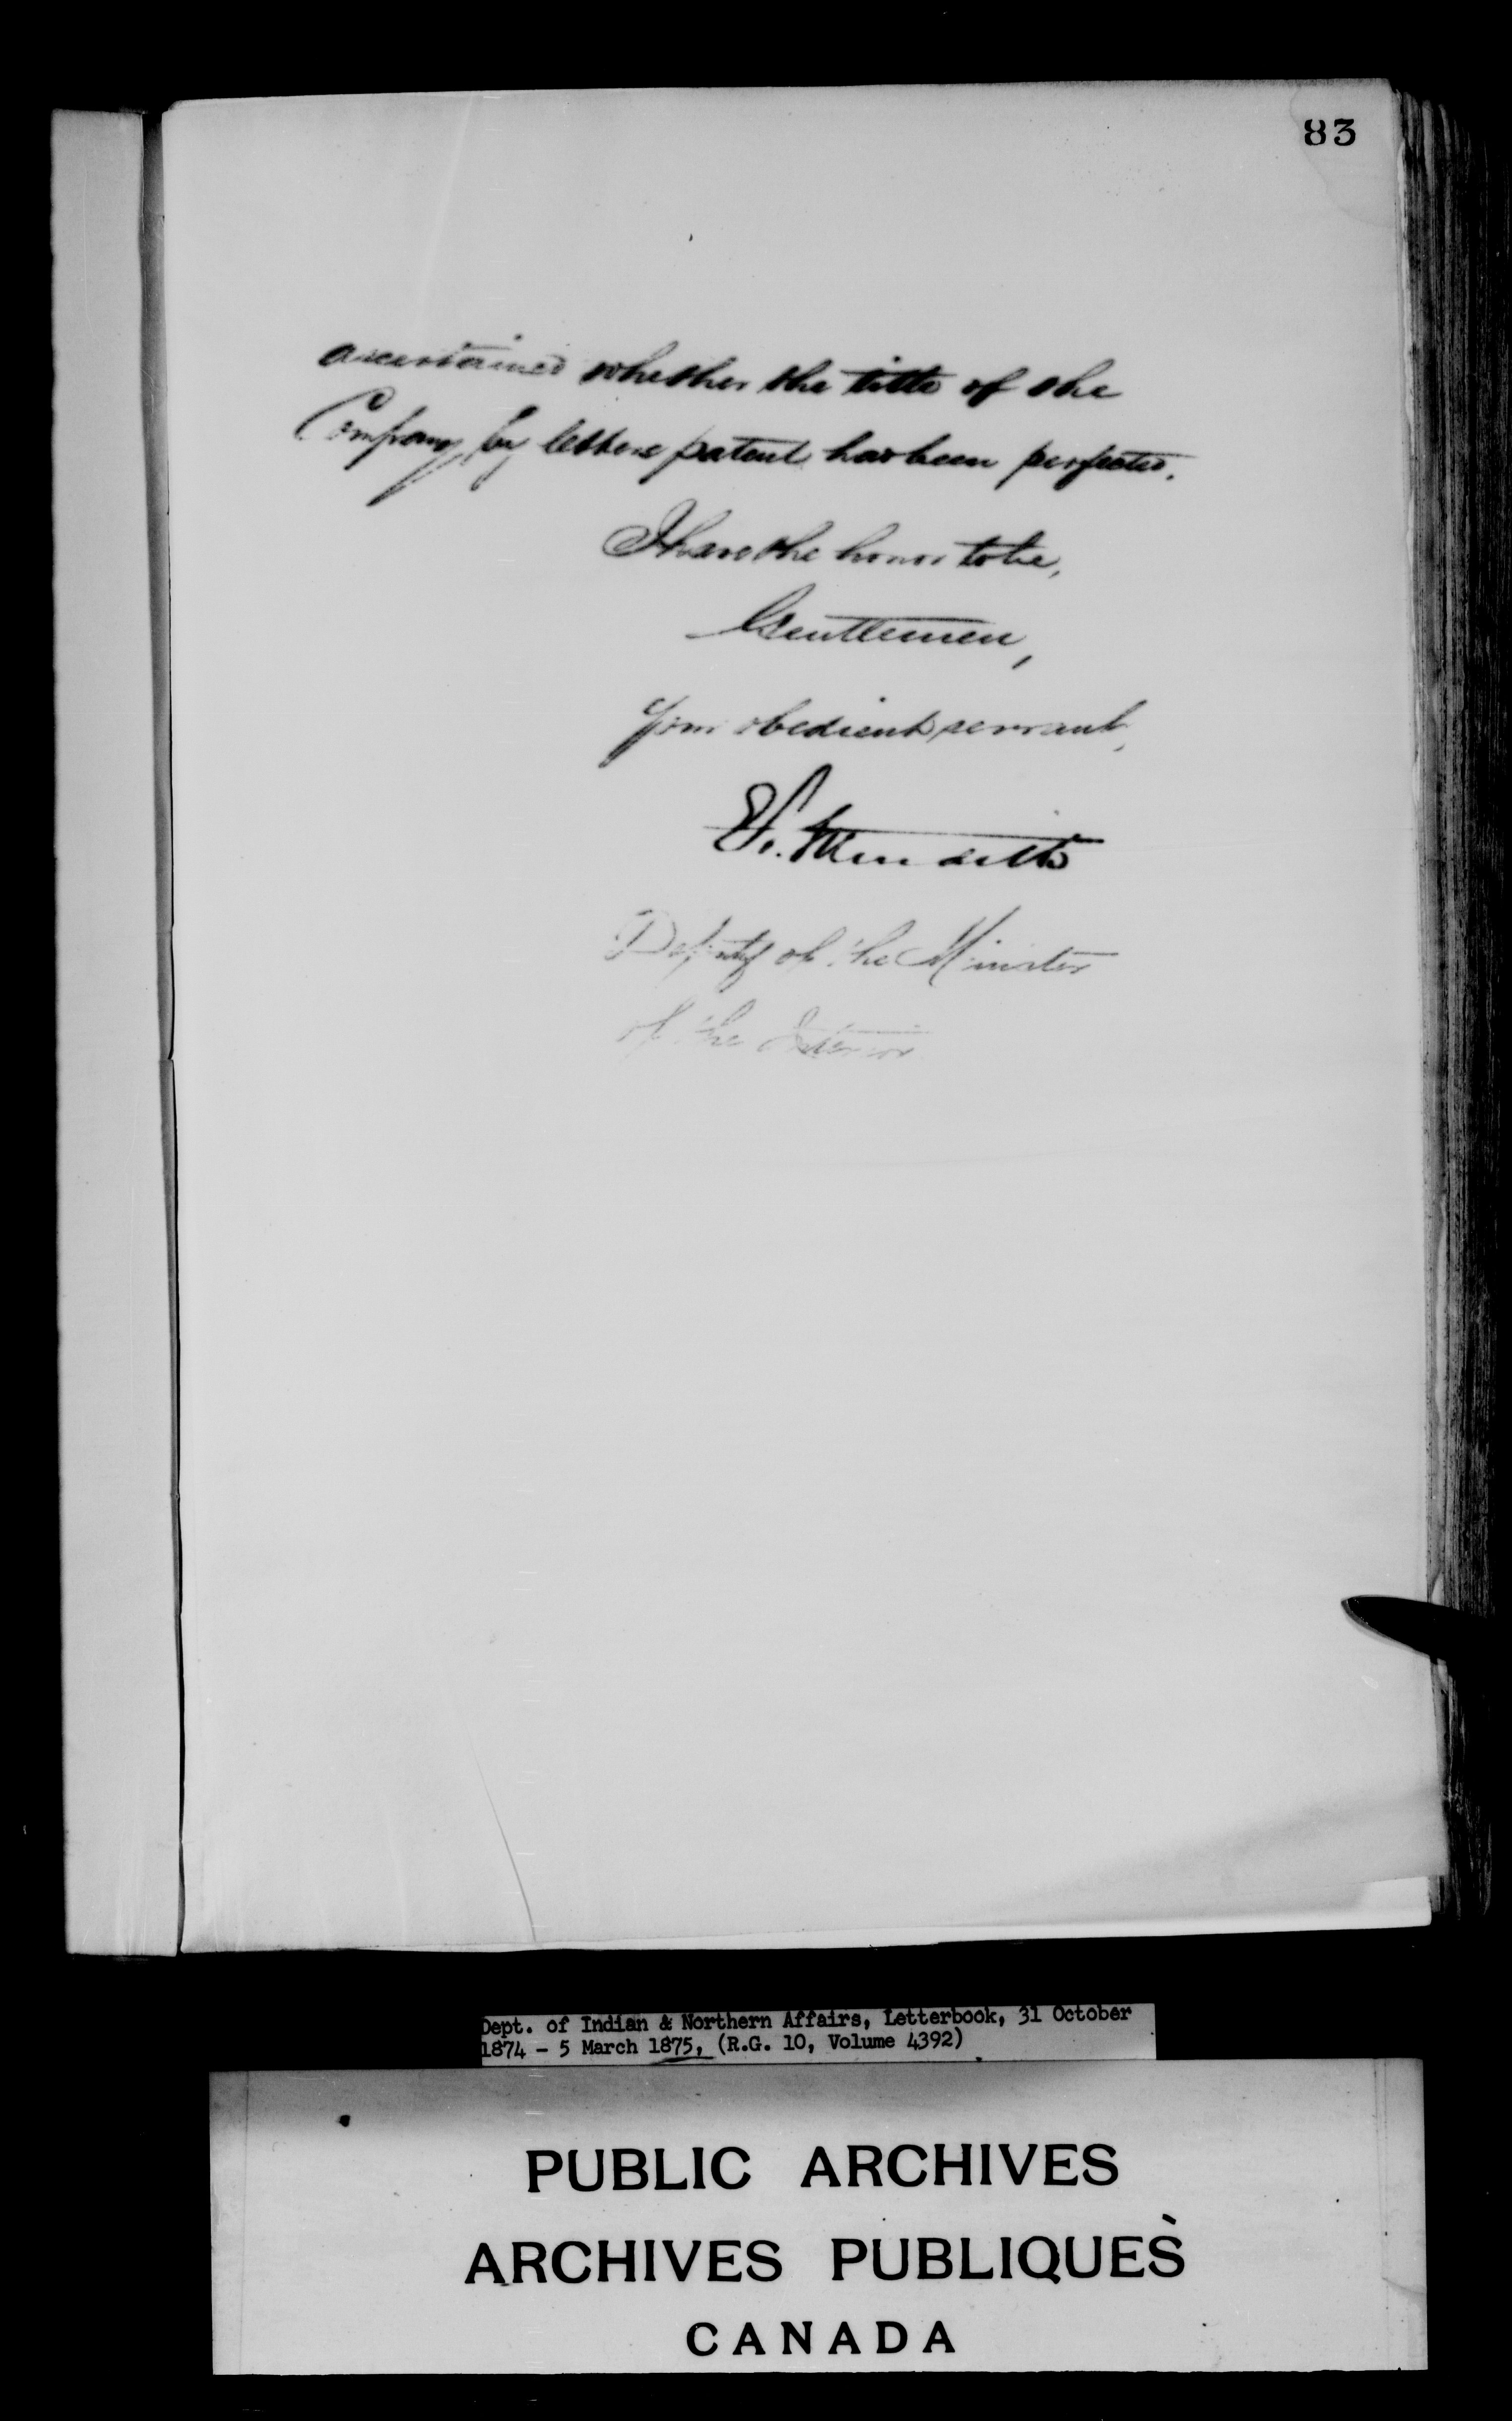 83
ascertained whether the title of the
Company by letters patent has been perfected.
I have the honor to be,
Gentlemen,
Your obedient servant,
E. A. Meredith
Deputy of the Minister
of the Interior
Dept. of Indian & Northern Affairs, Letterbook, 31 October
1874 - 5 March 1875, (R.G. 10, Volume 4392)
PUBLIC ARCHIVES
ARCHIVES PUBLIQUES
CANADA